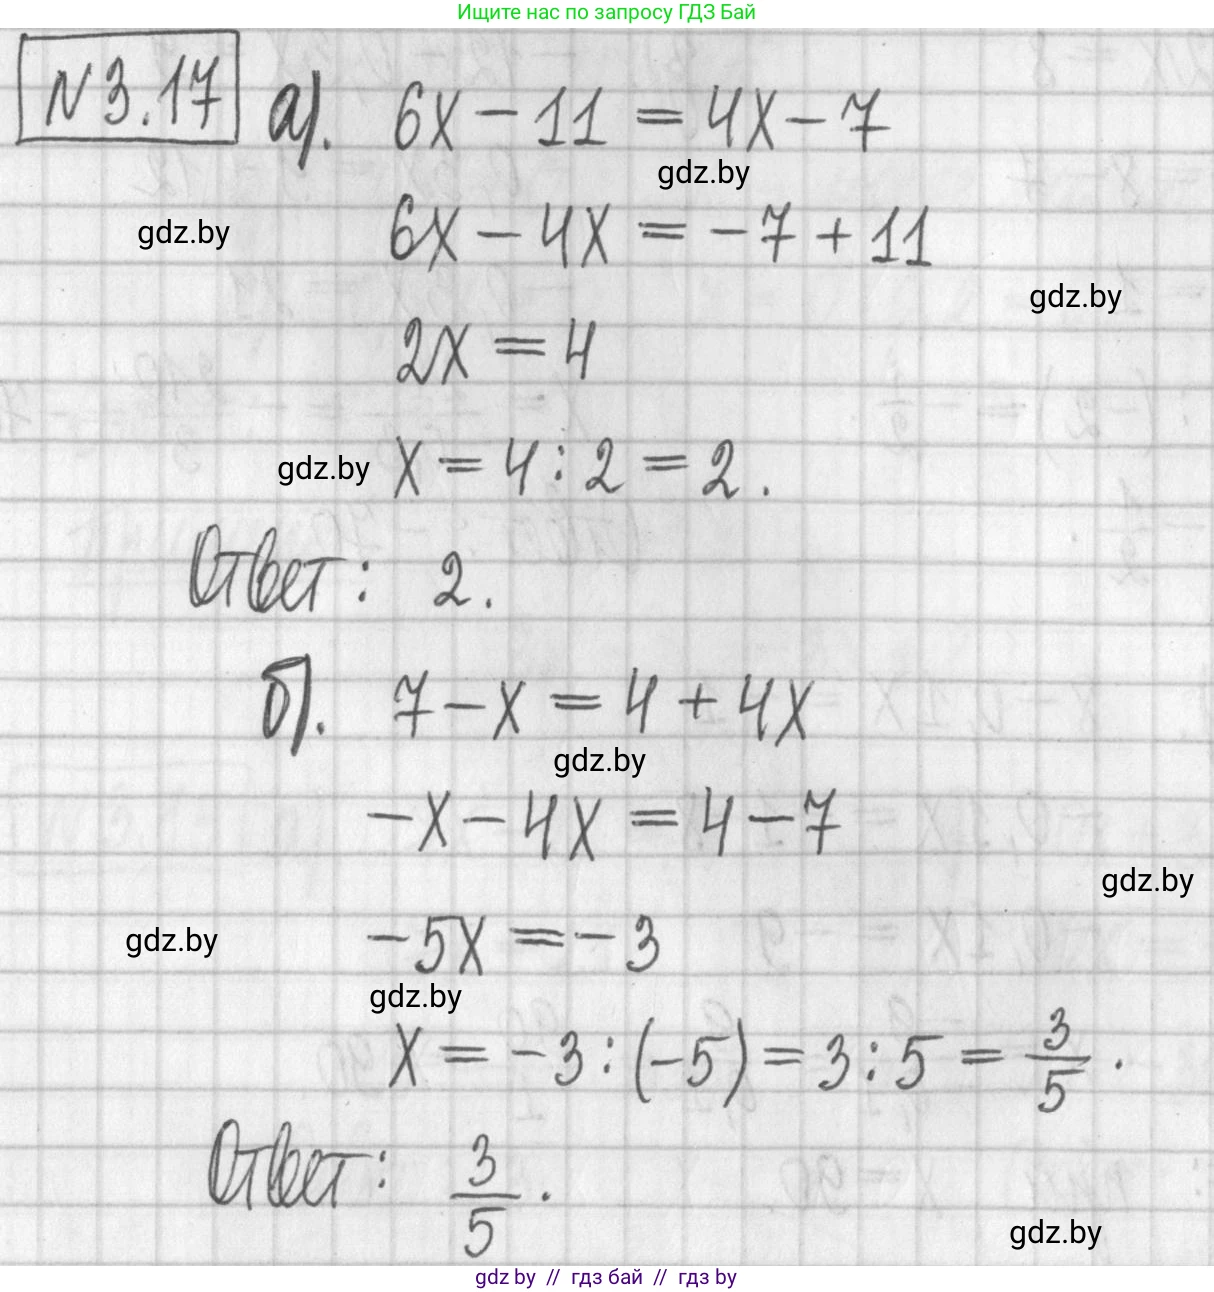 Ищите нас по запросу ГДЗ Бай
№ 3.17 а). 6x − 11 = 4x − 7
gdz.by
6x − 4x = −7 + 11
gdz.by
gdz.by
2x = 4
gdz.by x = 4 : 2 = 2.
Ответ: 2.
б). 7 − x = 4 + 4x
gdz.by
−x − 4x = 4 − 7
gdz.by
gdz.by −5x = −3
gdz.by
x = −3 : (−5) = 3 : 5 = 3/5.
Ответ: 3/5.
gdz.by
gdz by // гдз бай // гдз by